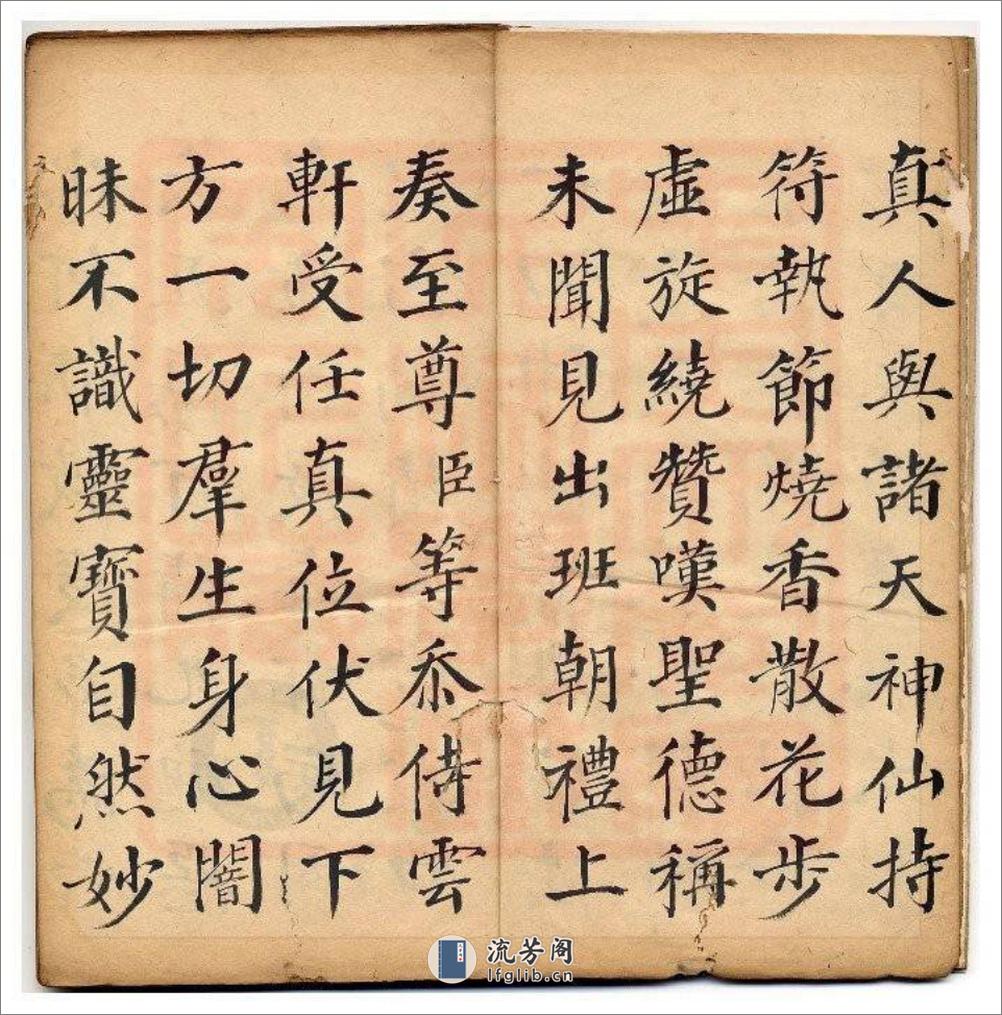 真人與諸天神仙持
符執節燒香散花步
虛旋繞贊嘆聖德稱
未聞見出班朝禮上
奏至尊臣等忝侍雲
軒受任真位伏見下
方一切羣生身心闇
昧不識靈寶自然妙
流芳阁
lfglib.cn